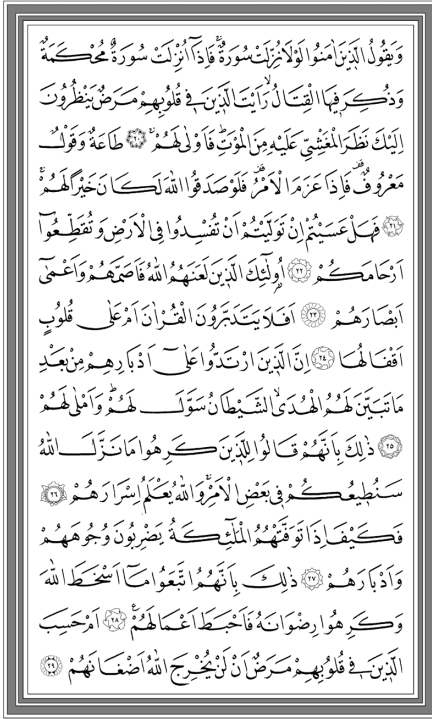 وَيَقُولُ الَّذِينَ اٰمَنُوا لَوْلَا نُزِّلَتْ سُورَةٌۚ فَاِذَٓا اُنْزِلَتْ سُورَةٌ مُحْكَمَةٌ
وَذُكِرَ فِيهَا الْقِتَالُۙ رَاَيْتَ الَّذِينَ فِي قُلُوبِهِمْ مَرَضٌ يَنْظُرُونَ
اِلَيْكَ نَظَرَ الْمَغْشِيِّ عَلَيْهِ مِنَ الْمَوْتِۜ فَاَوْلٰى لَهُمْۚ ﴿٢٠﴾ طَاعَةٌ وَقَوْلٌ
مَعْرُوفٌ۠ فَاِذَا عَزَمَ الْاَمْرُ۠ فَلَوْ صَدَقُوا اللّٰهَ لَكَانَ خَيْرًا لَهُمْۚ
﴿٢١﴾ فَهَلْ عَسَيْتُمْ اِنْ تَوَلَّيْتُمْ اَنْ تُفْسِدُوا فِي الْاَرْضِ وَتُقَطِّعُٓوا
اَرْحَامَكُمْ ﴿٢٢﴾ اُو۬لٰٓئِكَ الَّذِينَ لَعَنَهُمُ اللّٰهُ فَاَصَمَّهُمْ وَاَعْمٰٓى
اَبْصَارَهُمْ ﴿٢٣﴾ اَفَلَا يَتَدَبَّرُونَ الْقُرْاٰنَ اَمْ عَلٰى قُلُوبٍ
اَقْفَالُهَا ﴿٢٤﴾ اِنَّ الَّذِينَ ارْتَدُّوا عَلٰٓى اَدْبَارِهِمْ مِنْ بَعْدِ
مَا تَبَيَّنَ لَهُمُ الْهُدَىۙ الشَّيْطَانُ سَوَّلَ لَهُمْۜ وَاَمْلٰى لَهُمْ
﴿٢٥﴾ ذٰلِكَ بِاَنَّهُمْ قَالُوا لِلَّذِينَ كَرِهُوا مَا نَزَّلَ اللّٰهُ
سَنُطِيعُكُمْ فِي بَعْضِ الْاَمْرِۚ وَاللّٰهُ يَعْلَمُ اِسْرَارَهُمْ ﴿٢٦﴾
فَكَيْفَ اِذَا تَوَفَّتْهُمُ الْمَلٰٓئِكَةُ يَضْرِبُونَ وُجُوهَهُمْ
وَاَدْبَارَهُمْ ﴿٢٧﴾ ذٰلِكَ بِاَنَّهُمُ اتَّبَعُوا مَٓا اَسْخَطَ اللّٰهَ
وَكَرِهُوا رِضْوَانَهُ فَاَحْبَطَ اَعْمَالَهُمْ۟ ﴿٢٨﴾ اَمْ حَسِبَ
الَّذِينَ فِي قُلُوبِهِمْ مَرَضٌ اَنْ لَنْ يُخْرِجَ اللّٰهُ اَضْغَانَهُمْ ﴿٢٩﴾